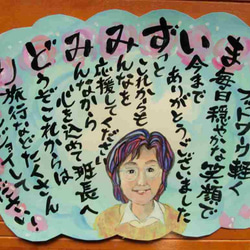 フットワーク軽く
毎日穏やかな笑顔で
今まで
ありがとうございました
ずっと
これからも
みんなを
応援してください
みんなから
心を込めて班長へ
どうぞこれからは
旅行などたくさん
ください